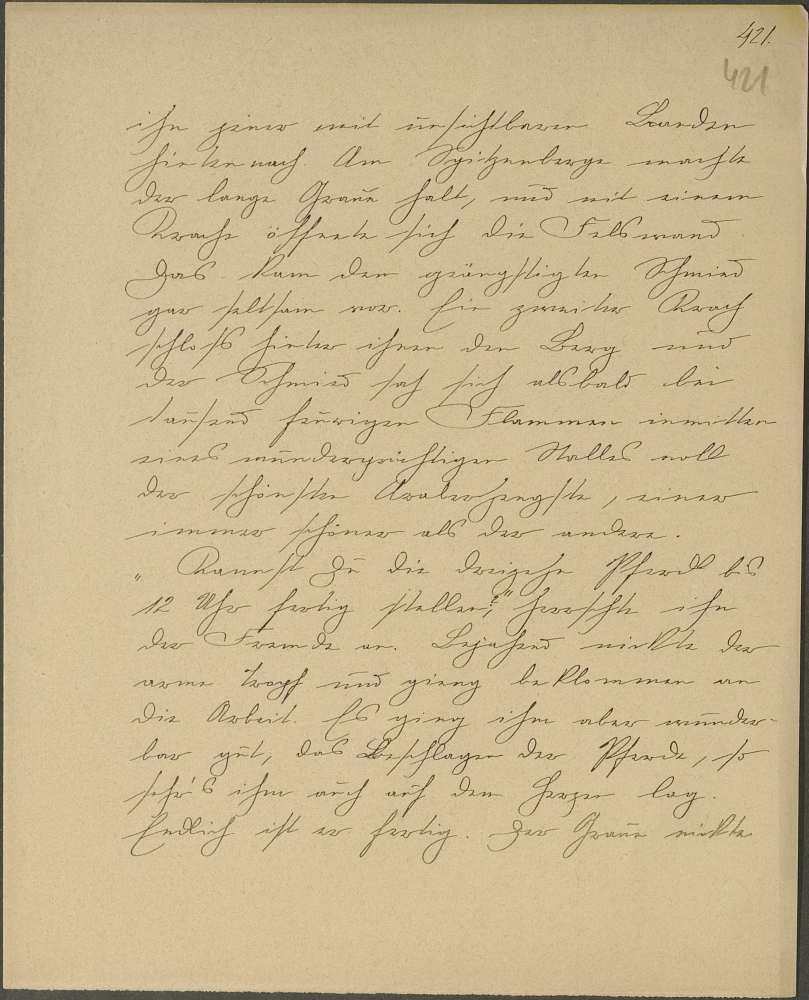 421.
421
ihn jener mit unsichtbaren Banden
hintennach. Am Spitzenberge machte
der lange Graue halt, und mit einem
Krache öffnete sich die Felswand.
Das kam den geängstigten Schmied
gar seltsam vor. Ein zweiter Krach
schloss hinter ihnen den Berg und
der Schmied sah sich alsbald bei
tausend feurigen Flammen inmitten
eines wunderprächtigen Stalles voll
der schönsten Araberhengste, einer
immer schöner als der andere.
„Kannst Du die dreizehn Pferde bis
12 Uhr fertig stellen?," herrschte ihn
der Fremde an. Bejahend nickte der
arme Tropf und gieng beklommen an
die Arbeit. Es ging ihm aber wunder-
bar gut, das Beschlagen der Pferde, so
sehr's ihm auch auf dem Herzen lag.
Endlich ist er fertig. Der Graue nickte